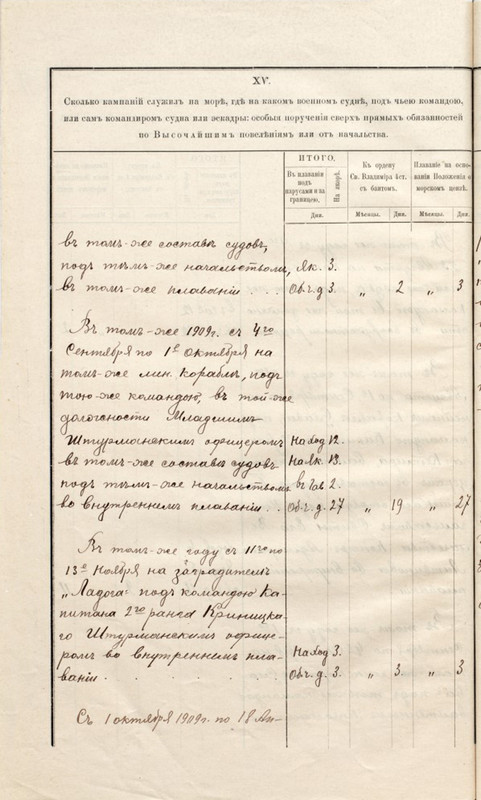 XV.
Сколько кампаній служилъ на морѣ, гдѣ на какомъ военномъ суднѣ, подъ чьею командою,
или самъ командиромъ судна или эскадры: особыя порученія сверхъ прямыхъ обязанностей
по Высочайшимъ повелѣніямъ или отъ начальства.
ИТОГО.
Въ плаваніи подъ парусами и за границею,
На якорѣ.
Къ ордену Св. Владиміра 4 ст. съ бантомъ.
Плаваніе на основаніи Положенія о морскомъ цензѣ.
Дни. Мѣсяцы. Дни. Мѣсяцы. Дни.
въ томъ-же составѣ судовъ,
подъ тѣмъ-же начальствомъ, Як. 3.
въ томъ-же плаваніи . . . Об. ч. д. 3. „ 2 „ 3
Въ томъ-же 1909г. съ 4го
Сентября по 1е Октября на
томъ-же мин. корабль, подъ
тою-же командою, въ той-же
должности Младшимъ
Штурманскимъ офицеромъ На ход 12.
въ томъ-же составѣ судовъ На як. 13.
подъ тѣмъ-же начальствомъ въ гав 2.
во внутреннемъ плаваніи . . Об. ч. д. 27 „ 19 „ 27
Въ томъ-же году съ 11го по
13е Ноября на заградителѣ
„Ладога" подъ командою Ка-
питана 2го ранга Криницка-
го Штурманскимъ офице-
ромъ во внутреннемъ пла- На ход 3.
ваніи . . . . . Об. ч. д. 3. „ 3. „ 3
Съ 1 октября 1909г. по 18 Ап-